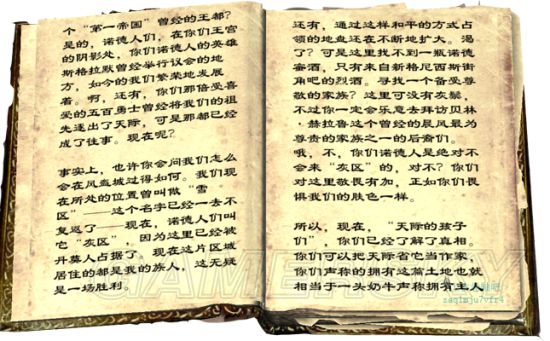 个“第一帝国”曾经的王都?
是的，诺德人们，在你们王宫
的阴影处，你们诺德人的英雄
斯格拉默曾经举行议会的地
方，如今的我们繁荣地发展
着。啊，还有，你们那倍受喜
爱的五百勇士曾经将我们的祖
先逐出了天际，可是那都已经
成了往事。现在呢?
事实上，也许你会问我们怎么
会在风盔城过得如何。我们现
在所处的位置曾叫做“雪
区”——这个名字已经一去不
复返了——现在，诺德人们叫
它“灰区”，因为这里已经被
丹莫人占据了。现在这片区域
居住的都是我的族人，这无疑
是一场胜利。
还有，通过这样和平的方式占
领的地盘还在不断地扩大。渴
了? 可是这里找不到一瓶诺德
蜜酒，只有来自新格尼西斯街
角吧的烈酒。寻找一个备受尊
敬的家族? 这里可没有灰鬃，
不过你一定会乐意去拜访贝林
·赫拉鲁这个曾经的晨风最为
尊贵的家族之一的后裔们。
哦，不，你们诺德人是绝对不
会来“灰区”的，对不? 你们
对这里敬畏有加，正如你们畏
惧我们的肤色一样。
所以，现在，“天际的孩子
们”，你们已经了解了真相。
你们可以把天际省它当作家，
你们声称的拥有这篇土地也就
相当于一头奶牛声称拥有主人
GAMERSKY
zaqimju7vfr4